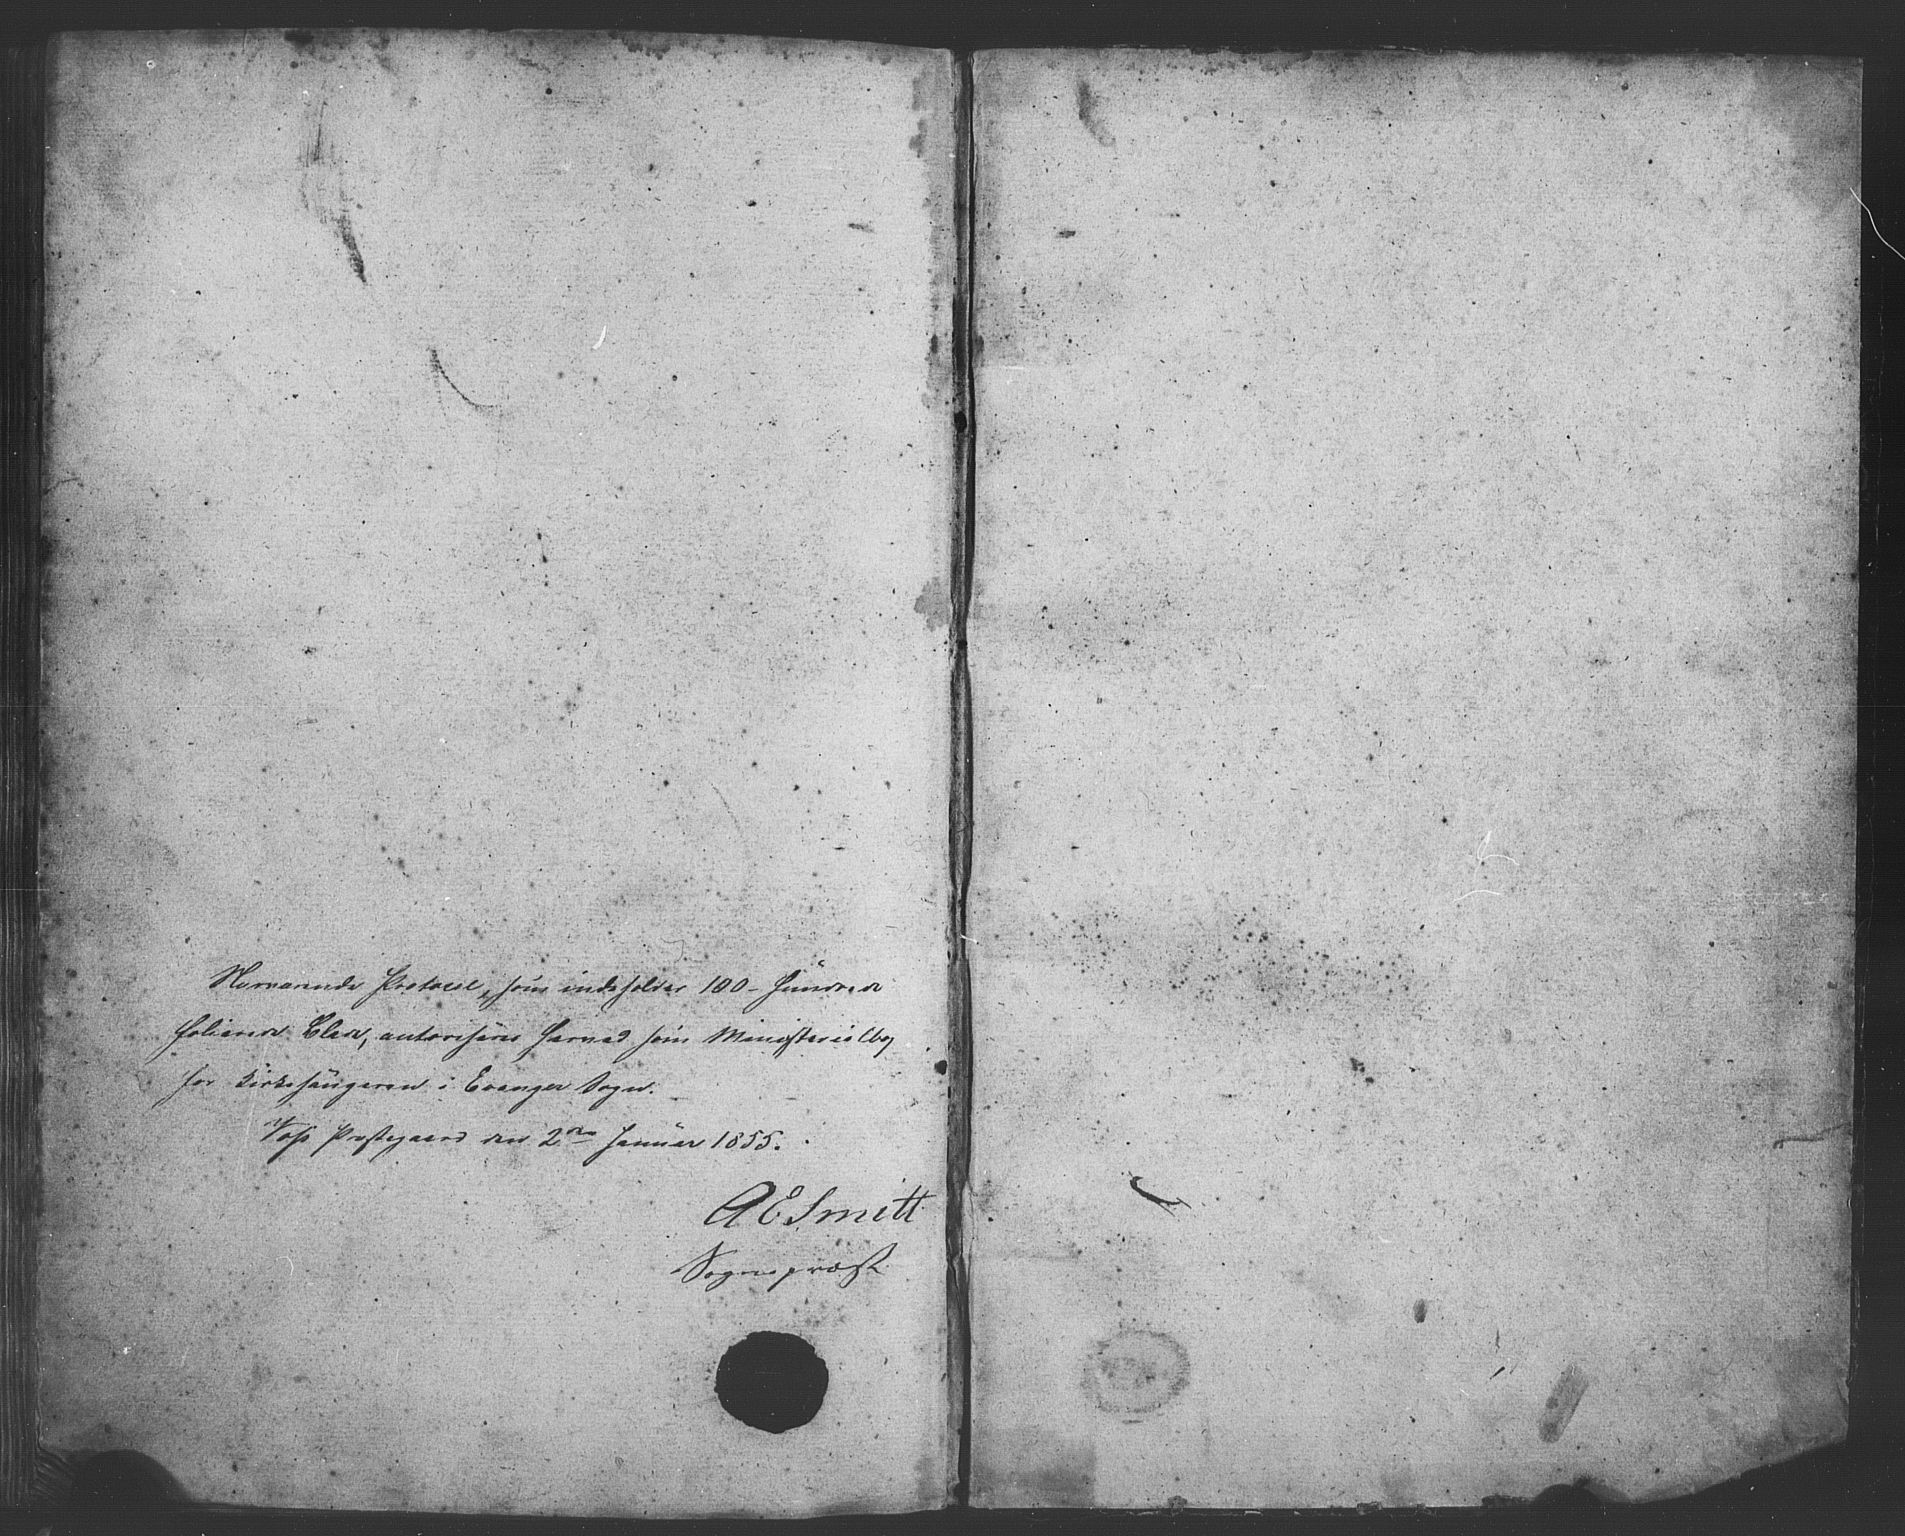 Nærværende Protocol, som indeholder 100 - Hundrede
folierede Blade, autoriseres herved som Ministerialbog
for Kirkesangeren i Evanger Sogn.
Voss Præstegaard den 2den Januar 1855.
A E Smitt
Sognepræst